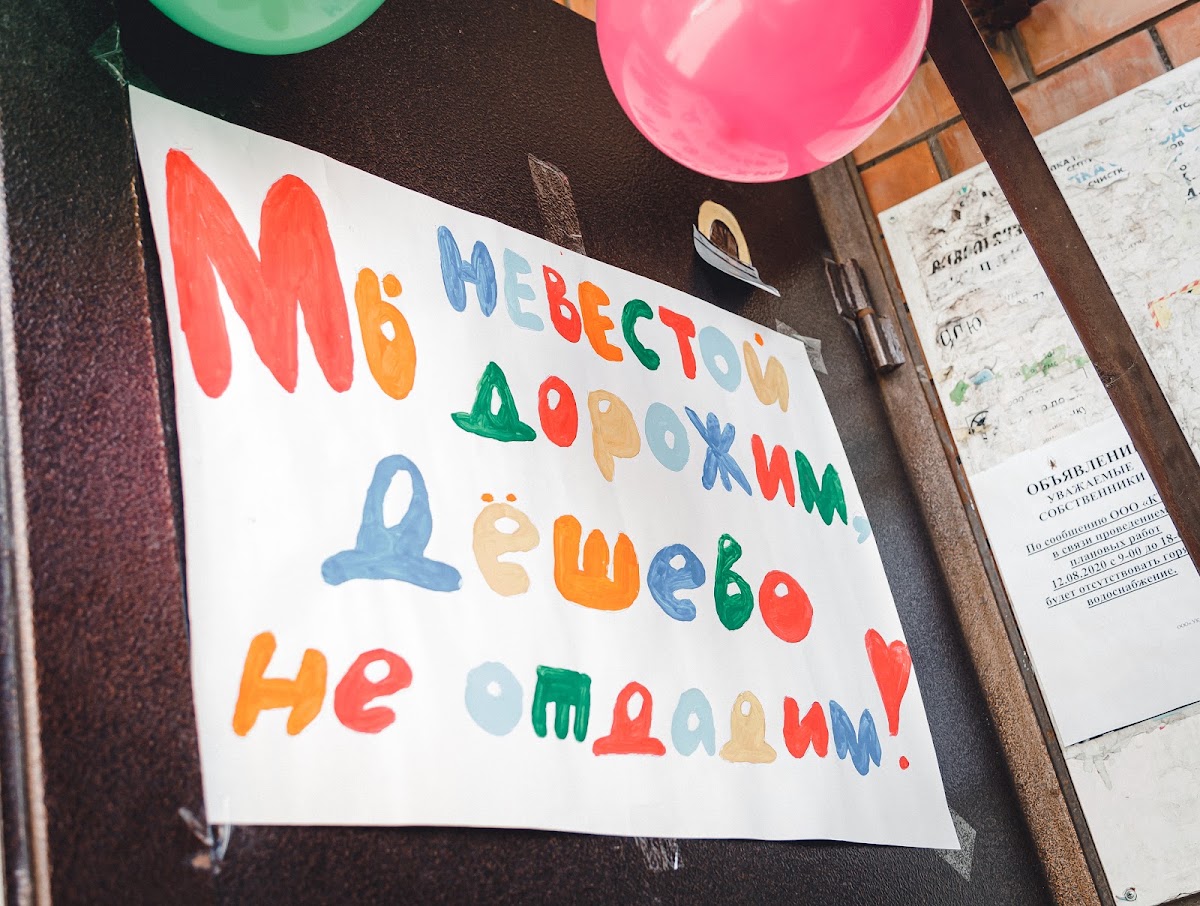 Мы невестой
дорожим,
Дёшево
не отдадим!
ОБЪЯВЛЕНИ
УВАЖАЕМЫЕ
СОБСТВЕННИКИ
По сообщению ООО «К
в связи проведением
плановых работ
12.08.2020 с 9-00 до 18-
будет отсутствовать горя
водоснабжение.